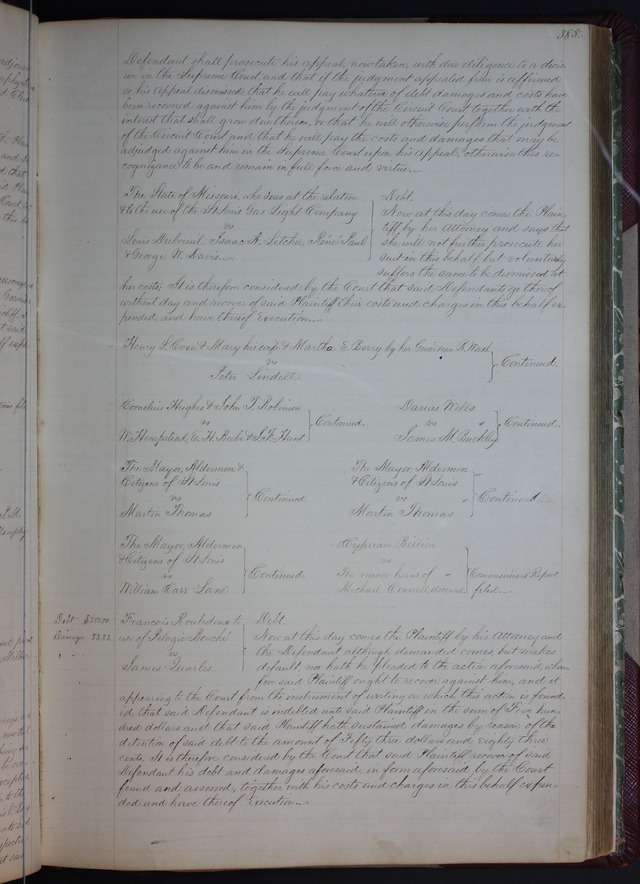 385.
Defendant shall prosecute his appeal, now taken, with due diligence to a decis-
ion in the Supreme Court and that if the judgment appealed from is affirmed
or his appeal dismissed that he will pay whatever of debt damages and costs have
been recovered against him by the judgment of the Circuit Court together with the
interest that shall grow due thereon, or that he will otherwise perform the judgment
of the Circuit Court and that he will pay the costs and damages that may be
adjudged against him in the Supreme Court upon his appeal, otherwise this re-
cognizance to be and remain in full force and virtue.
The State of Missouri, who sues at the relation
& to the use of the St. Louis Gas Light Company
vs
Louis Dubreuil, Isaac A. Letcher, René Paul
& George W. Davis.
Debt.
Now at this day comes the Plain-
tiff by her Attorney and says that
she will not further prosecute her
suit in this behalf but voluntarily
suffers the same to be dismissed at
her costs, It is therefore considered by the Court that said Defendants go thereof
without day and recover of said Plaintiff their costs and charges in this behalf ex-
pended, and have thereof Execution.
Henry S. & Mary his wife & Martha E. Berry by her Guardian R. Wash
vs
Peter Lindell
Continued.
Cornelius Hughes & John T. Robinson
vs
W. Hempstead, E. H. Beebe & S. F. Hunt
Continued.
Darius Wells
vs
James M. Buckley
Continued.
The Mayor, Aldermen &
Citizens of St Louis
vs
Martin Thomas
Continued
The Mayor, Aldermen
& Citizens of St Louis
vs
Martin Thomas
Continued.
The Mayor, Aldermen
& Citizens of St Louis
vs
William Carr Lane
Continued.
Cyprian
vs
The minor heirs of
Michael Connell deceased
Commissioners Report
filed.
Debt $500.00
Damages 53.83
Francois Roubidoux to
use of Pelagie
vs
James Quarles
Debt
Now at this day comes the Plaintiff by his Attorney and
the Defendant although demanded comes but makes
default nor hath he pleaded to the action aforesaid, where-
fore said Plaintiff ought to recover against him, and it
appearing to the Court from the instrument of writing on which this action is found-
ed, that said Defendant is indebted unto said Plaintiff in the sum of Five hun-
dred dollars and that said Plaintiff hath sustained damages by reason of the
detention of said debt to the amount of Fifty three dollars and eighty three
cents, It is therefore considered by the Court that said Plaintiff recover of said
Defendant his debt and damages aforesaid, in form aforesaid by the Court
found and assessed, together with his costs and charges in this behalf expen-
ded, and have thereof Execution.